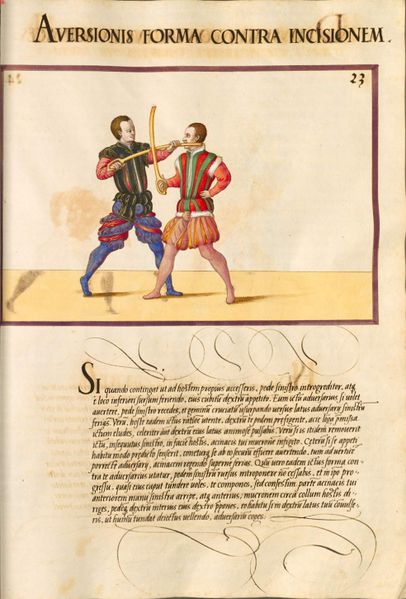 AVERSIONIS FORMA CONTRA INCISIONEM.
23
Si quando contingat ut ad hostem propius accesseris, pede sinistro introgreditor, atq
e loco inferiori sursum feriendo, eius cubitū dextrū appetito. Eum ictū adversarius si velit
avertere, pede sinistro recedes, et geminū cruciatū usurpando versus latus adversarij sinistrū
ferias. Verū, hoste eadem ictus ratiōe utente, dextro te pedem
ictum eludes, celeriter dextrū eius latus Verū si is itidem removerit
ictū, insequutus sinistro, in facie hostis, acinacis tui mucronē infigito. Ceterū si te appeti
habitu modo senserit, conetur se ab eo securū efficere avertendo, tum ad
porrectē adversarij, acinacem regendo superne ferias. Quū vero eadem ictus forma con
tra te adversarius utatur, pedem sinistrū rursus introponere nō cessabis, et in ipso pro
gressu, quasi eius caput tundere velles, te compones, sed confestim parte acinacis tui
anteriorem manu sinistra arripe, atq anterius, mucronem circa collum hostis di
riges, pedeq dextrū interius eius dextro ad dextrū latus tuū cōverse
ris, ut humi tundat deiectus vellendo, adversariū coges.